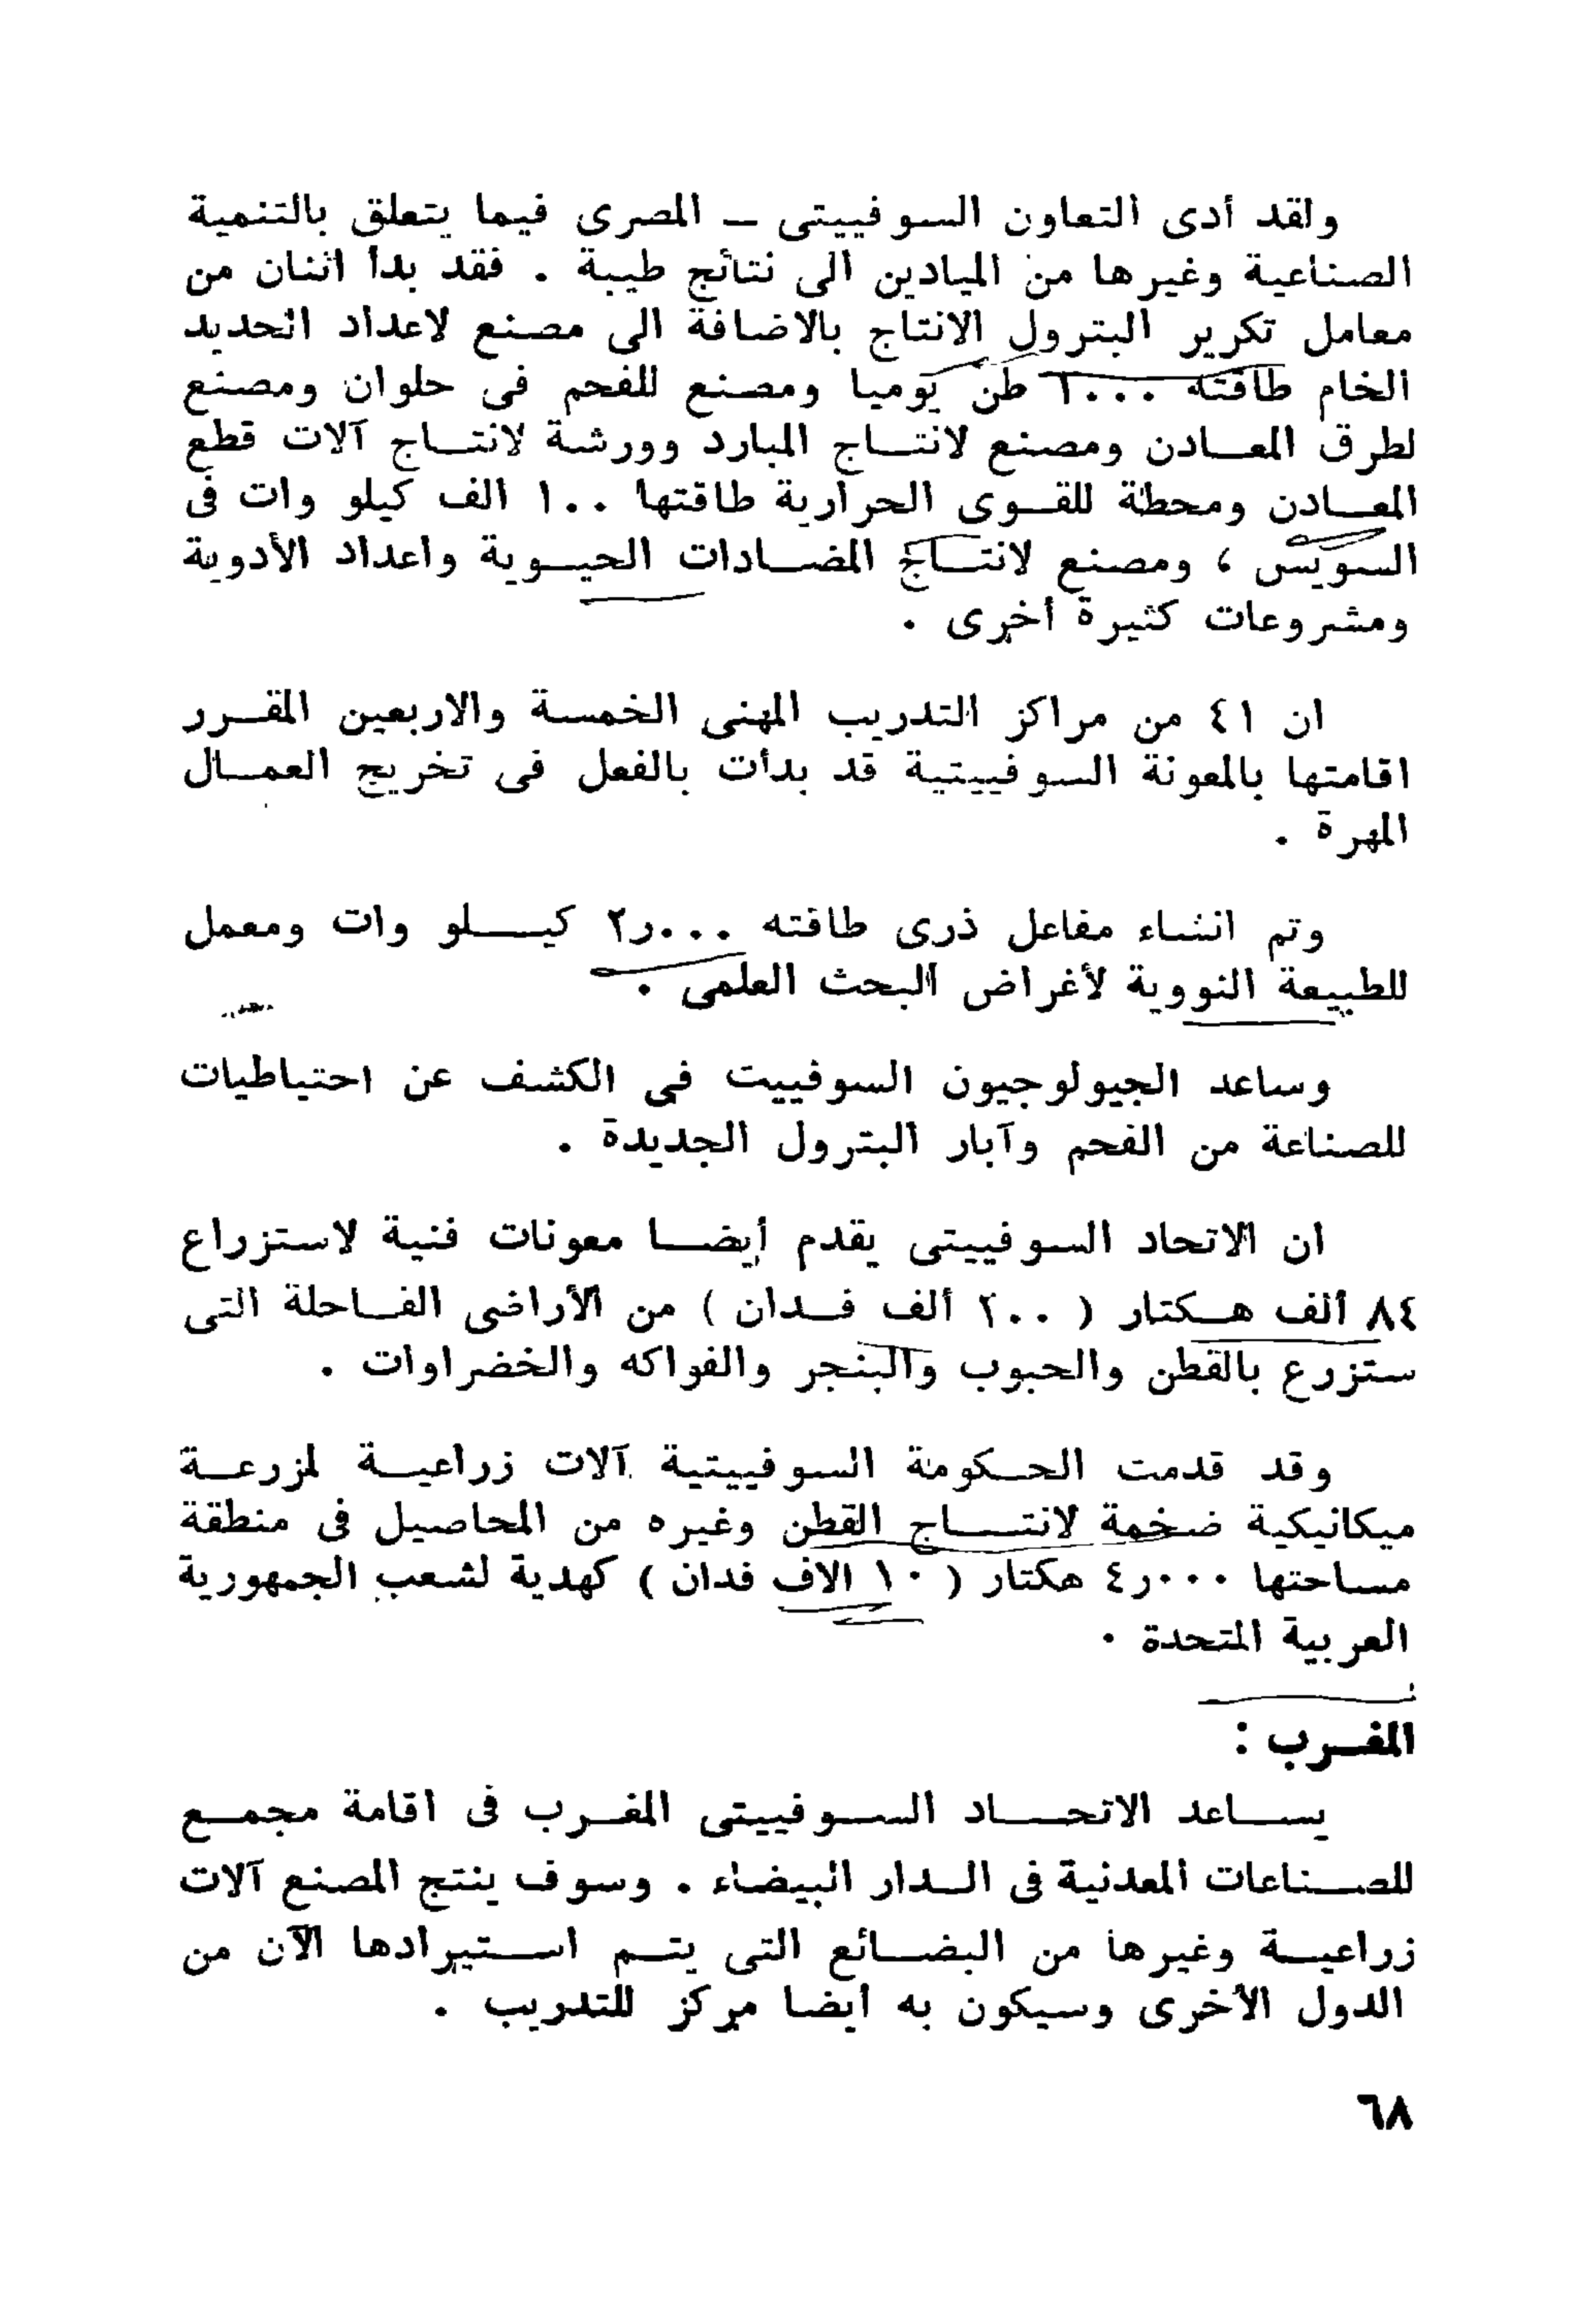 ولقد أدى التعاون السوفييتى ــ المصرى فيما يتعلق بالتنمية
الصناعية وغيرها من الميادين الى نتائج طيبة . فقد بدأ اثنان من
معامل تكرير البترول الانتاج بالاضافة الى مصنع لاعداد الحديد
الخام طاقته ٦٠٠٠ طن يوميا ومصنع للفحم فى حلوان ومصنع
لطرق المعادن ومصنع لانتاج المبارد وورشة لانتاج آلات قطع
المعادن ومحطة للقوى الحرارية طاقتها ١٠٠ الف كيلو وات فى
السويس ، ومصنع لانتاج المضادات الحيوية واعداد الأدوية
ومشروعات كثيرة أخرى .
ان ٤١ من مراكز التدريب المهنى الخمسة والاربعين المقرر
اقامتها بالمعونة السوفييتية قد بدأت بالفعل فى تخريج العمال
المهرة .
وتم انشاء مفاعل ذرى طاقته ٢ر٠٠٠ كيلو وات ومعمل
للطبيعة النووية لأغراض البحث العلمى .
وساعد الجيولوجيون السوفييت فى الكشف عن احتياطيات
للصناعة من الفحم وآبار البترول الجديدة .
ان الاتحاد السوفييتى يقدم أيضا معونات فنية لاستزراع
٨٤ ألف هكتار ( ٢٠٠ ألف فدان ) من الأراضى القاحلة التى
ستزرع بالقطن والحبوب والبنجر والفواكه والخضراوات .
وقد قدمت الحكومة السوفييتية آلات زراعية لمزرعة
ميكانيكية ضخمة لانتاج القطن وغيره من المحاصيل فى منطقة
مساحتها ٤ر٠٠٠ هكتار ( ١٠ الاف فدان ) كهدية لشعب الجمهورية
العربية المتحدة ٠
المغرب :
يساعد الاتحاد السوفييتى المغرب فى اقامة مجمع
للصناعات المعدنية فى الدار البيضاء . وسوف ينتج المصنع آلات
زراعية وغيرها من البضائع التى يتم استيرادها الآن من
الدول الأخرى وسيكون به أيضا مركز للتدريب .
٦٨